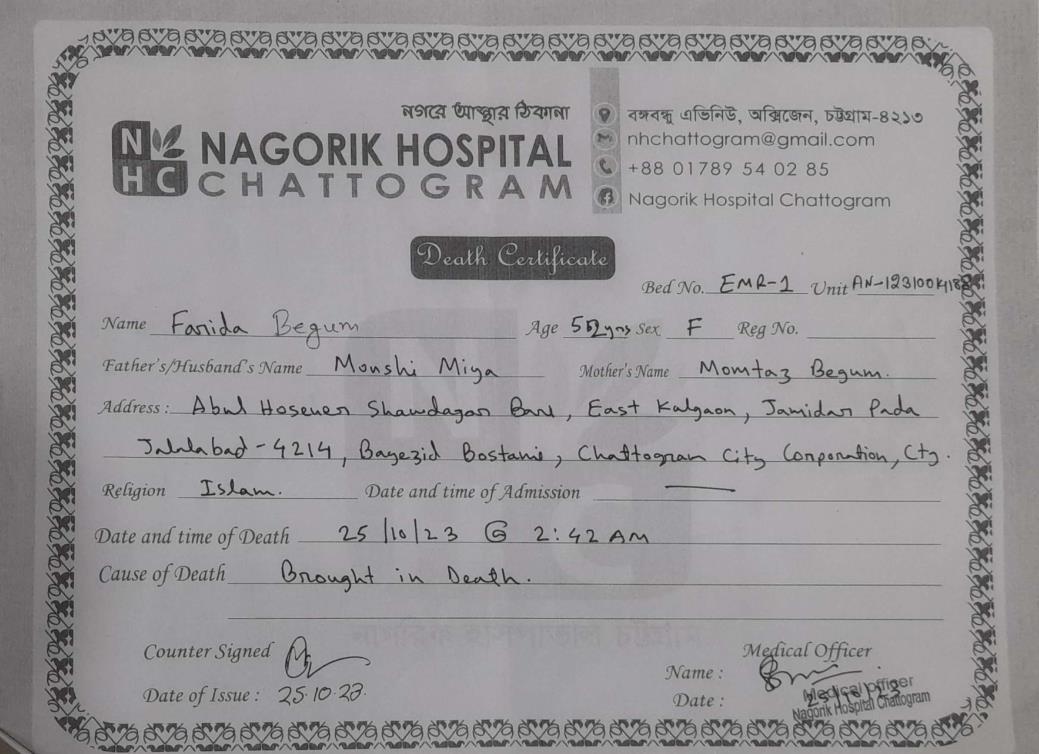 নগরে আস্থার ঠিকানা
NHC
NAGORIK HOSPITAL
CHATTOGRAM
বঙ্গবন্ধু এভিনিউ, অক্সিজেন, চট্টগ্রাম-৪২১৩
nhchattogram@gmail.com
+88 01789 54 02 85
Nagorik Hospital Chattogram
Death Certificate
Bed No. EMR-1 Unit AN-1231004188
Name Farida Begum Age 52yrs Sex F Reg No.
Father's/Husband's Name Monshi Miya Mother's Name Momtaz Begum.
Address: Abul Hosener Shawdagar Bari, East Kulgaon, Jamidar Pada
Jalalabad-4214, Bayezid Bostami, Chattogram City Corporation, Ctg.
Religion Islam. Date and time of Admission
Date and time of Death 25/10/23 @ 2:42 AM
Cause of Death Brought in Death.
Counter Signed Medical Officer
Name :
Date of Issue : 25.10.23. Date : 25/10/23
Medical Officer
Nagorik Hospital Chattogram